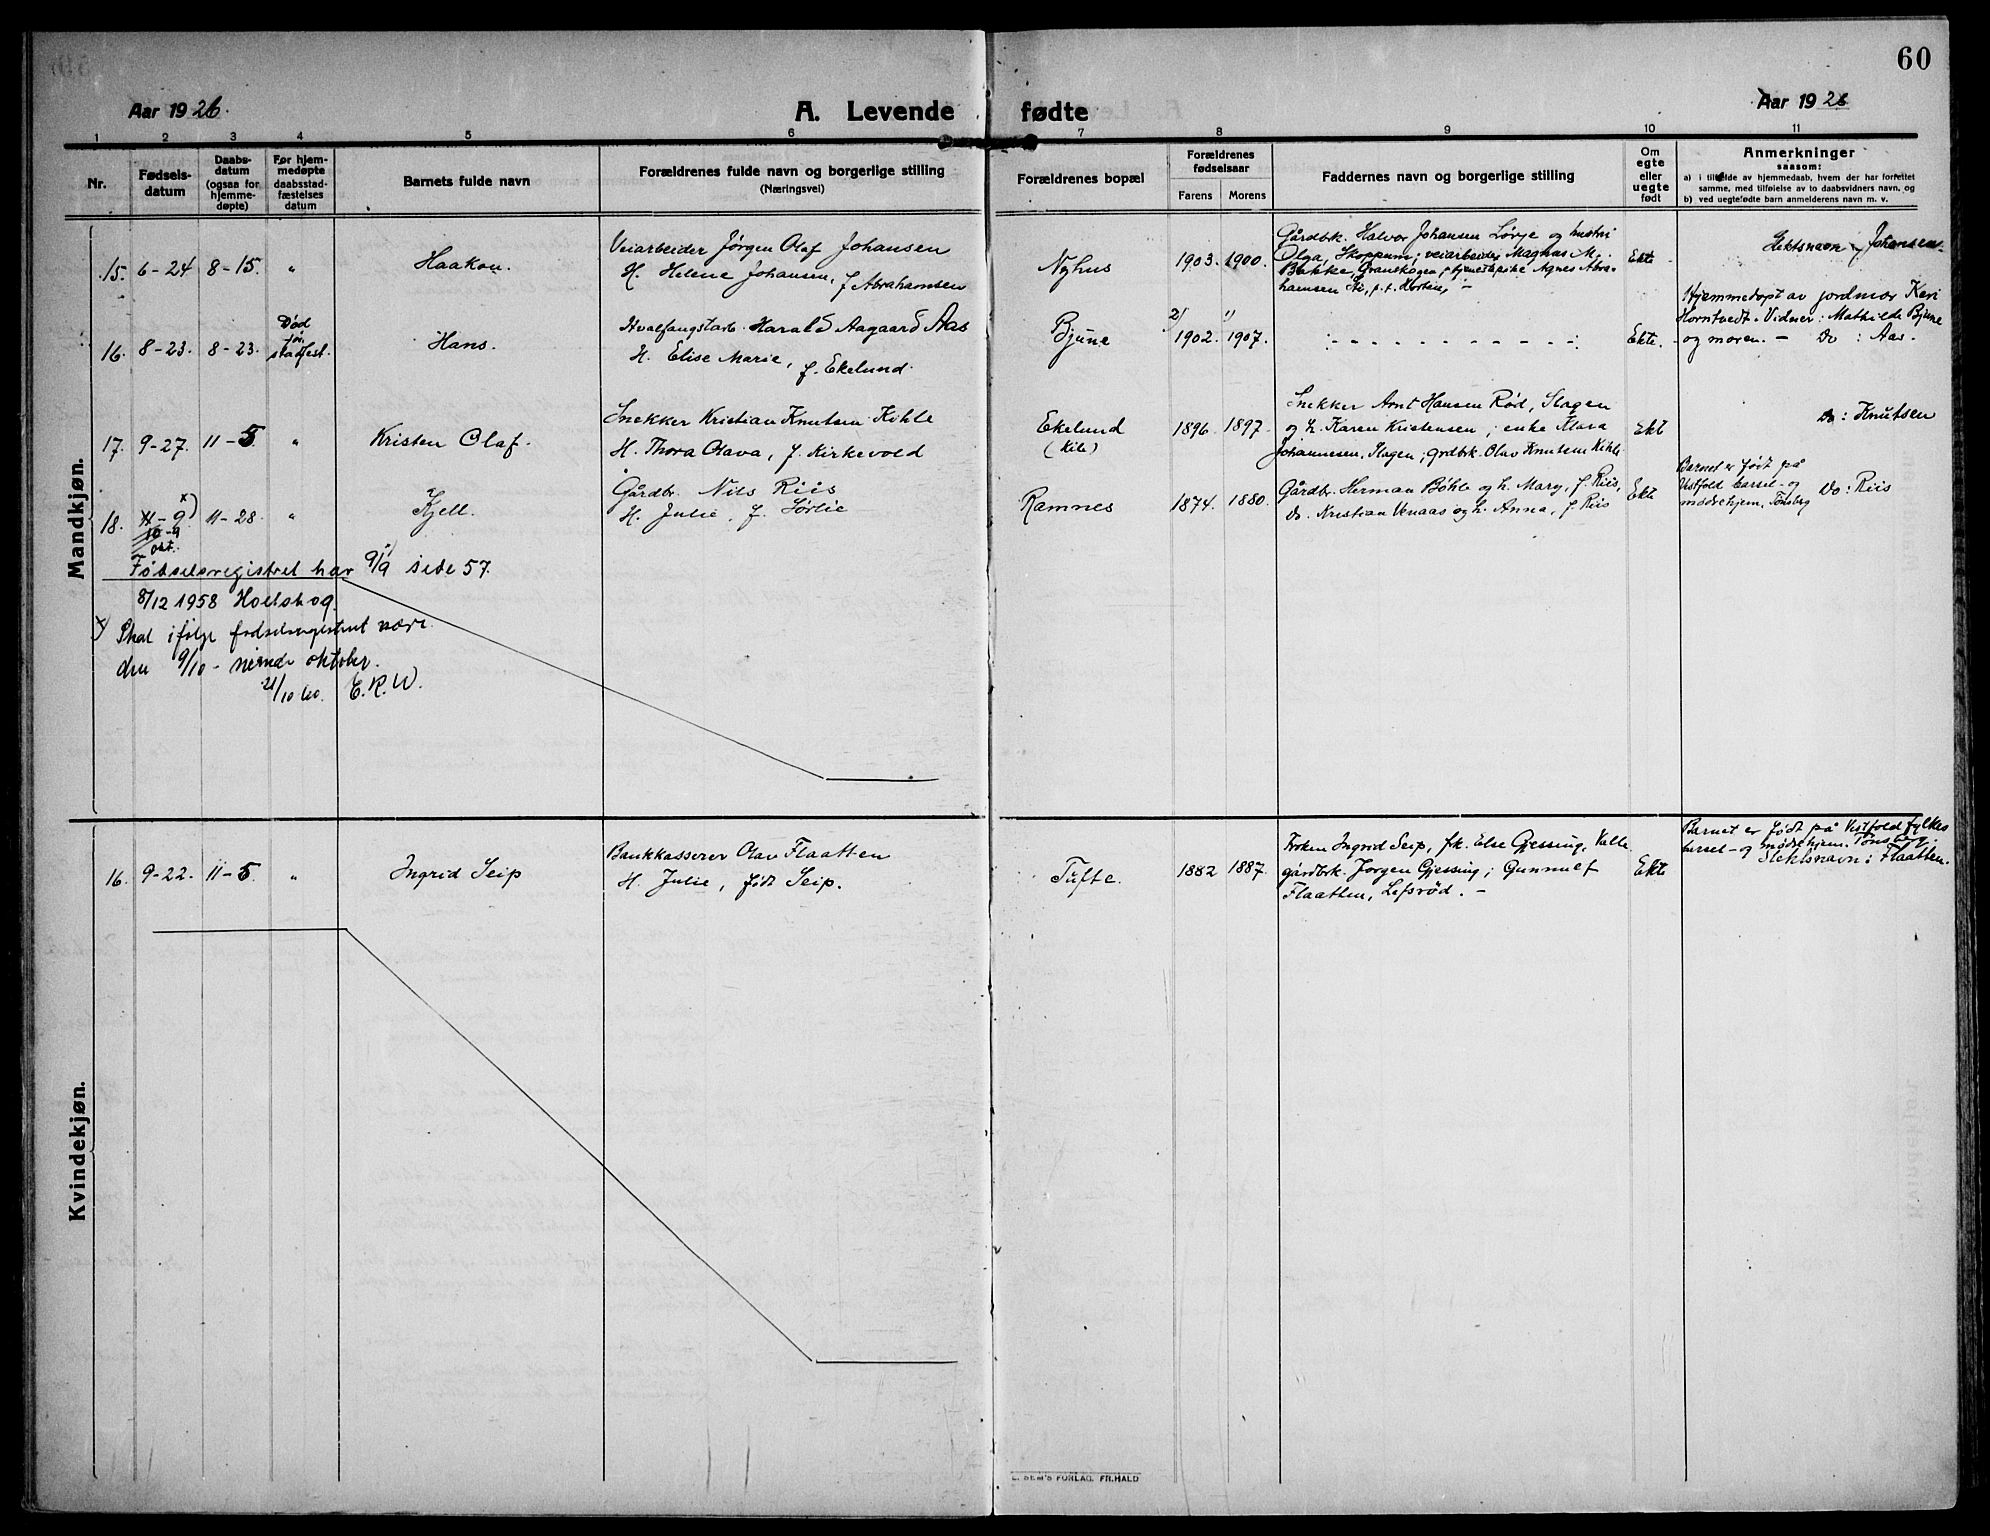 60
Aar 1926.
A. Levende fødte
Aar 1926
1 2 3 4 5 6 7 8 9 10 11
Nr.
Fødsels-
datum
Daabs-
datum
(ogsaa for
hjemme-
døpte)
Før hjem-
medøpte
daabsstad-
fæstelses
datum
Barnets fulde navn
Forældrenes fulde navn og borgerlige stilling
(Næringsvei)
Forældrenes bopæl
Forældrenes
fødselsaar
Farens Morens
Faddernes navn og borgerlige stilling
Om
egte
eller
uegte
født
Anmerkninger
saasom:
a) i tilfælde av hjemmedaab, hvem der har forrettet
samme, med tilføielse av to daabsvidners navn, og
b) ved uegtefødte barn anmelderens navn m. v.
Mandkjøn.
15. 6-24 8-15. "
Haakon.
Veiarbeider Jörgen Olaf Johansen
H. Helene Johansen, f. Abrahamsen
Nyhus
1903. 1900.
Gårdbr. Halvor Johansen Lövje og hustru
Olga, Skoppum; veiarbeider Magnus M.
Bakke, Graneskogen; tjenestepike Agnes Abra-
hamsen, p.t. Horten, -
Ekte
Slektsnavn: Johansen.
16. 8-23. 8-23.
Död
för
stadfest.
Hans.
Hvalfangstarb. Harald Aagaard Aas
H. Elise Marie, f. Ekelund.
Bjune
2) 1)
1902. 1907.
Ekte.
Hjemmedöpt av jordmor Kari
Horntvedt. Vidner: Mathilde Bjune
og moren. - Do : Aas.
17. 9-27. 11-5 "
Kristen Olaf.
Snekker Kristian Knutsen Kihle
H. Thora Olava, f. Kirkevold
Ekelund
(Kile)
1896. 1897.
Snekker Arnt Hansen Röd, Slagen
og h. Karen Kristensen; enke Klara
Johannesen, Slagen; grdbr. Olav Knutsen Kihle.
Ekt
Do: Knutsen
18. 11-9 x) 11-28. "
10-9
okt.
Kjell.
Gårdbr. Nils Riis
H. Julie, f. Sörlie
Ramnes
1874. 1880.
Gårdbr. Herman Böhle og h. Mary, f. Riis,
Do. Kristian Venaas og h. Anna, f. Riis
Ekte
Barnet er födt på
Vestfold barsel- og
mödrehjem, Tönsberg Do: Riis
Födselsregistret har 9/9 side 57.
8/12 1958 Holtskog.
x) Skal ifölge fødselsregistret være
den 9/10 - niende oktober.
21/10 60. E.R.W.
Kvindekjøn.
16. 9-22. 11-5. "
Ingrid Seip
Bankkasserer Olav Flaatten
H. Julie, födt Seip.
Tufte.
1882 1887.
Fröken Ingrid Seip, frk. Else Gjessing, Valle
gårdbr. Jörgen Gjessing; Gunnulf
Flaatten, Lefsröd. -
Ekte
Barnet er födt på Vestfold fylkes
barsel- og mödrehjem, Tönsberg
Slektsnavn: Flaatten.
E. SEM'S FORLAG. FR.HALD